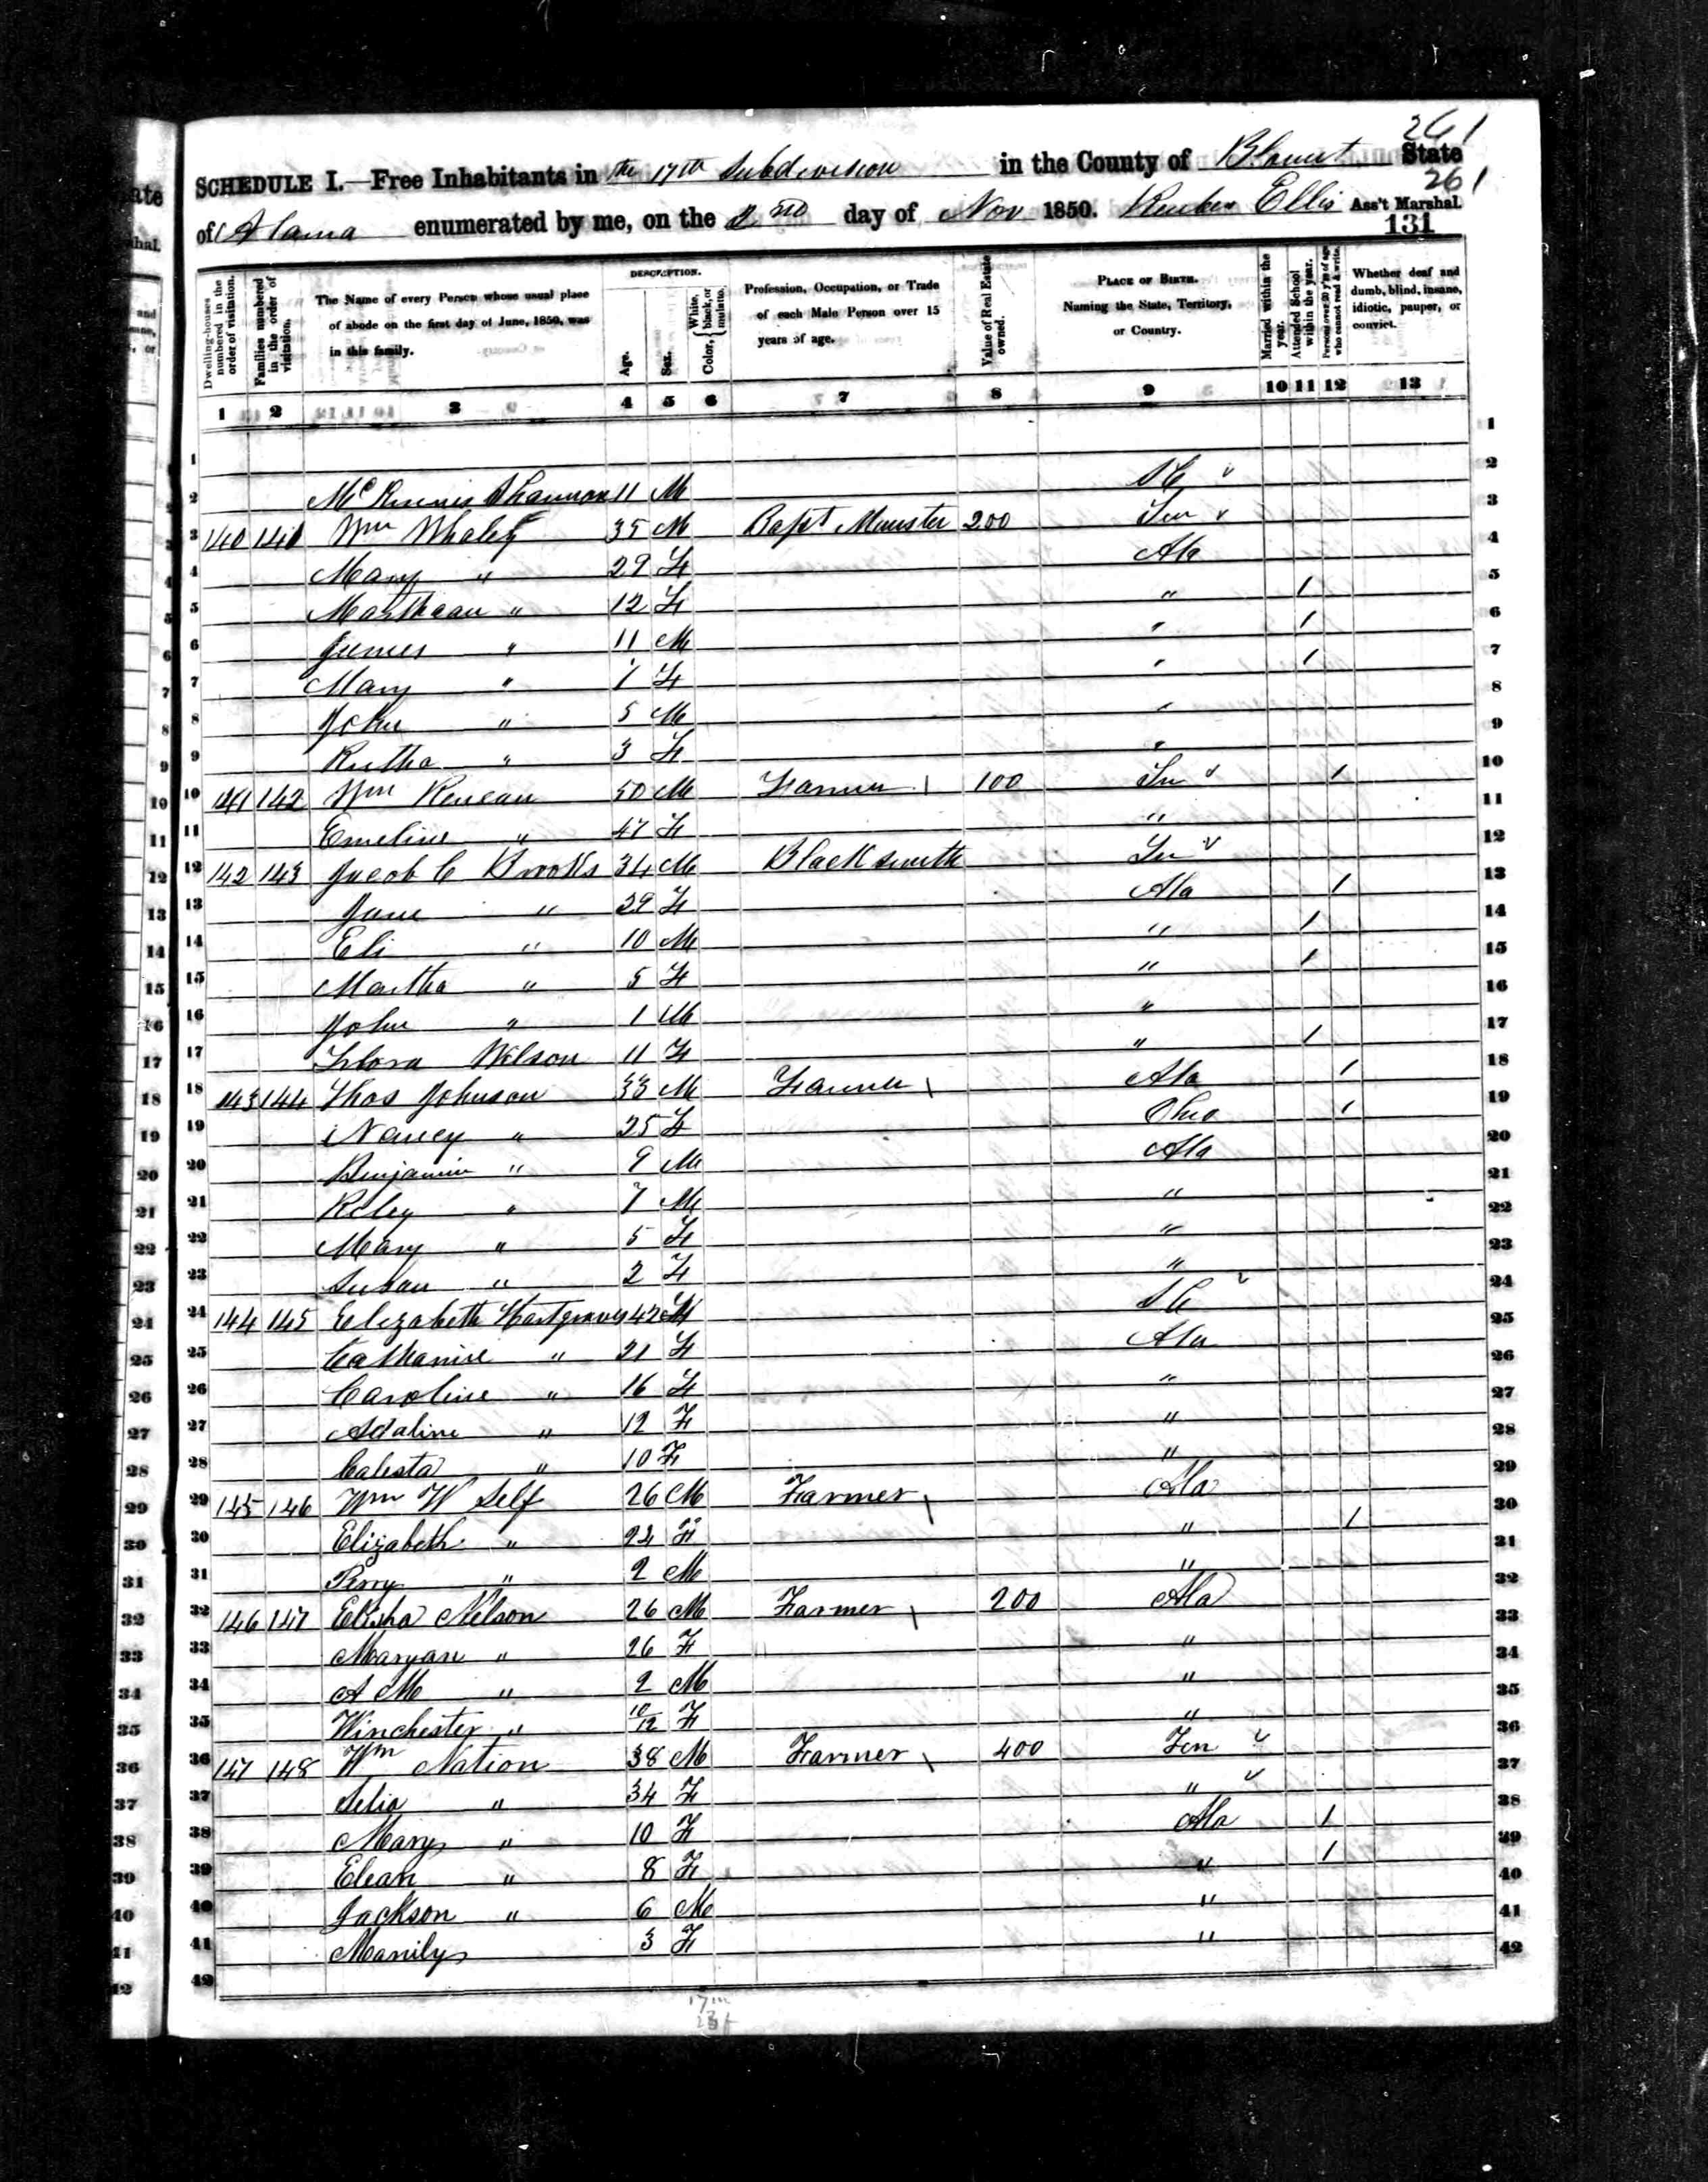 261
SCHEDULE I.—Free Inhabitants in the 17th Subdivision in the County of Blount State
261
of Alama enumerated by me, on the 2nd day of Nov 1850. Reuben Ellis Ass't Marshal.
131
Dwelling-houses numbered in the order of visitation.
Families numbered in the order of visitation.
The Name of every Person whose usual place of abode on the first day of June, 1850, was in this family.
DESCRIPTION.
Age.
Sex.
Color, { White, black, or mulatto.
Profession, Occupation, or Trade of each Male Person over 15 years of age.
Value of Real Estate owned.
PLACE OF BIRTH. Naming the State, Territory, or Country.
Married within the year.
Attended School within the year.
Persons over 20 y'rs of age who cannot read & write.
Whether deaf and dumb, blind, insane, idiotic, pauper, or convict.
1 2 3 4 5 6 7 8 9 10 11 12 13
1
2 Shannon 11 M S C
3 140 141 Wm Whaley 35 M Bapt Minister 200 Ten
4 Mary " 29 F Ala
5 Marthaan " 12 F " 1
6 James " 11 M " 1
7 Mary " F " 1
8 John " 5 M "
9 Rutha " 3 F "
10 141 142 Wm Reneau 50 M Farmer 100 Tn 1
11 Emeline " 47 F "
12 142 143 Jacob C Brooks 34 M Blacksmith Tn
13 Jane " 29 F Ala 1
14 Eli " 10 M " 1
15 Martha " 5 F " 1
16 John " 1 M "
17 Flora Wilson 11 F " 1
18 143 144 Thos Johnson 33 M Farmer Ala 1
19 Nancy " 25 F Ohio 1
20 Benjamin " 9 M Ala
21 Riley " 7 M "
22 Mary " 5 F "
23 Susan " 2 F "
24 144 145 Elizabeth Hartgraves 47 S C
25 Catharine " 21 F Ala
26 Caroline " 16 F "
27 Adaline " 12 F "
28 Calista " 10 F "
29 145 146 Wm W Self 26 M Farmer Ala
30 Elizabeth " 22 F " 1
31 Perry " 2 M "
32 146 147 Elisha Nelson 26 M Farmer 200 Ala
33 Maryan " 26 F "
34 A M " 2 M "
35 Winchester " 10/12 F "
36 147 148 Wm Nation 38 M Farmer 400 Ten
37 Selia " 34 F "
38 Mary " 10 F Ala 1
39 Elean " 8 F " 1
40 Jackson " 6 M "
41 Manily 3 F "
42
17m